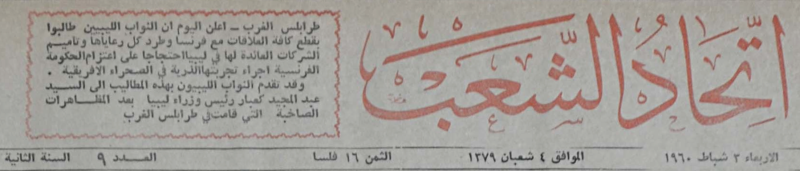 اتحاد الشعب
طرابلس الغرب ـ اعلن اليوم ان النواب الليبيين طالبوا
بقطع كافة العلاقات مع فرنسا وطرد كل رعاياها وتاميم
الشركات العائدة لها في ليبيا احتجاجا على اعتزام الحكومة
الفرنسية اجراء تجربتها الذرية في الصحراء الافريقية .
وقد تقدم النواب الليبيون بهذه المطاليب الى السيد
عبد المجيد كعبار رئيس وزراء ليبيا بعد المظاهرات
الصاخبة التي قامت في طرابلس الغرب
الاربعاء ٣ شباط ١٩٦٠ الموافق ٤ شعبان ١٣٧٩ الثمن ١٦ فلسا العدد ٩ السنة الثانية